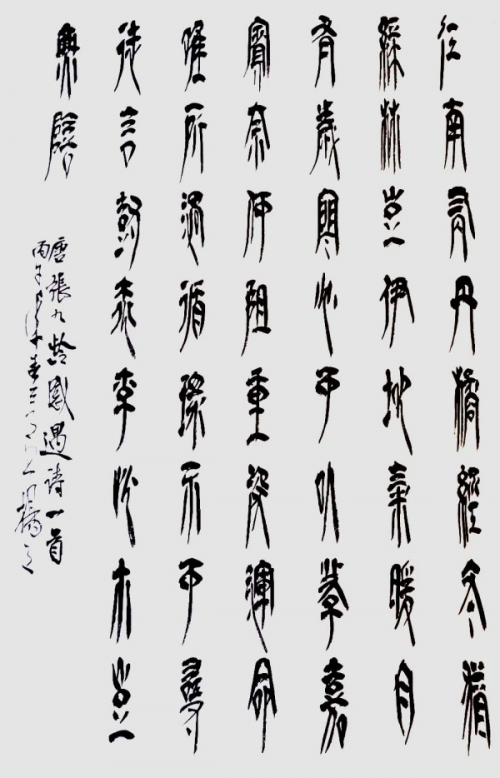 江南有丹橘經冬猶
綠林豈伊地氣暖自
有歲寒心可以薦嘉
賓奈何阻重深運命
唯所遇循環不可尋
徒言樹桃李此木豈
無陰
唐張九齡感遇詩一首
丙子春三